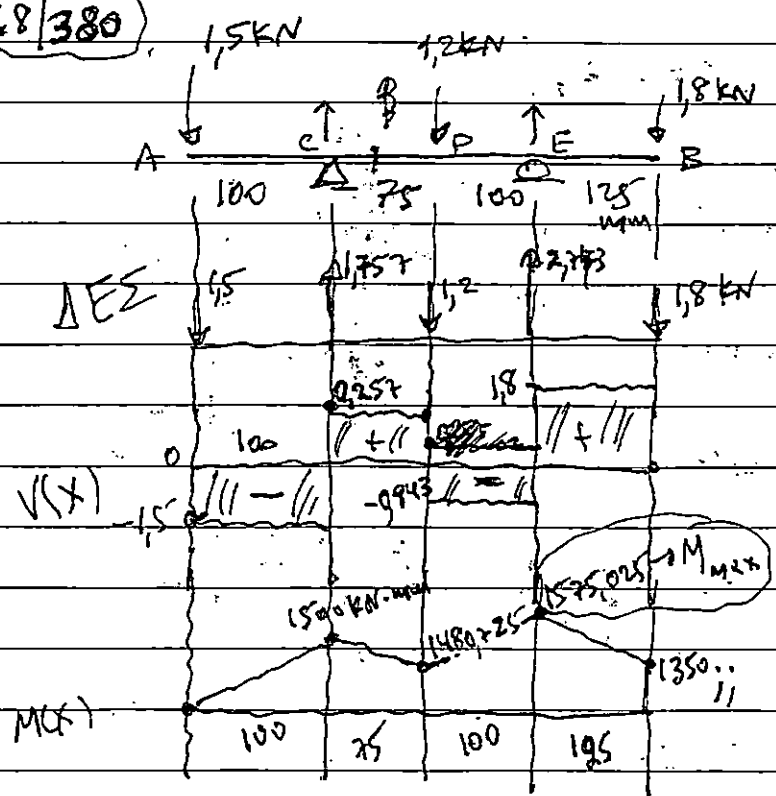 8/380
1,5KN 1,2KN 1,8 KN
A C P E B
100 75 100 125
mm
ΔΕΣ 1,5 1,757 1,2 2,743 1,8 KN
0,257 1,8
0 100 //+// //+///
V(X) -1,5 ///-/// -0,943 //-//
1500 KN·mm 1480,725 1575,025 → M max
1350
M(X) 100 75 100 125